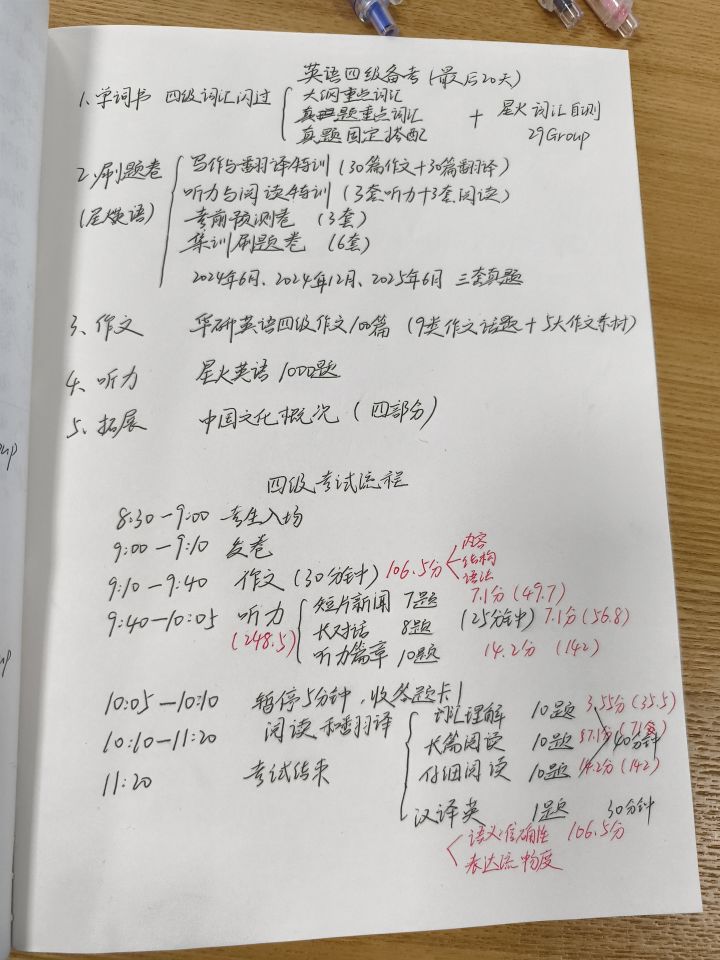 英语四级备考(最后20天)
1、单词书 四级词汇闪过 大纲重点词汇
真题重点词汇
真题固定搭配
+ 星火词汇自测
29Group
2、刷题卷 写作与翻译特训(30篇作文+30篇翻译)
(星火英语) 听力与阅读特训(3套听力+3套阅读)
考前预测卷 (3套)
集训刷题卷 (6套)
2024年6月、2024年12月、2025年6月 三套真题
3、作文 华研英语四级作文100篇 (9类作文话题+5大作文素材)
4、听力 星火英语 1000题
5、拓展 中国文化概况 (四部分)
四级考试流程
8:30-9:00 考生入场
9:00-9:10 发卷
9:10-9:40 作文(30分钟) 106.5分 内容
结构
语法
9:40-10:05 听力 短片新闻 7题 7.1分(49.7)
(248.5) 长对话 8题 (25分钟) 7.1分(56.8)
听力篇章 10题 14.2分 (142)
10:05-10:10 暂停5分钟,收答题卡1
10:10-11:20 阅读和翻译 词汇理解 10题 3.55分(35.5)
长篇阅读 10题 7.1分(71) 40分钟
仔细阅读 10题 14.2分(142)
11:20 考试结束
汉译英 1题 30分钟
语义准确性 106.5分
表达流畅度
up
up
up